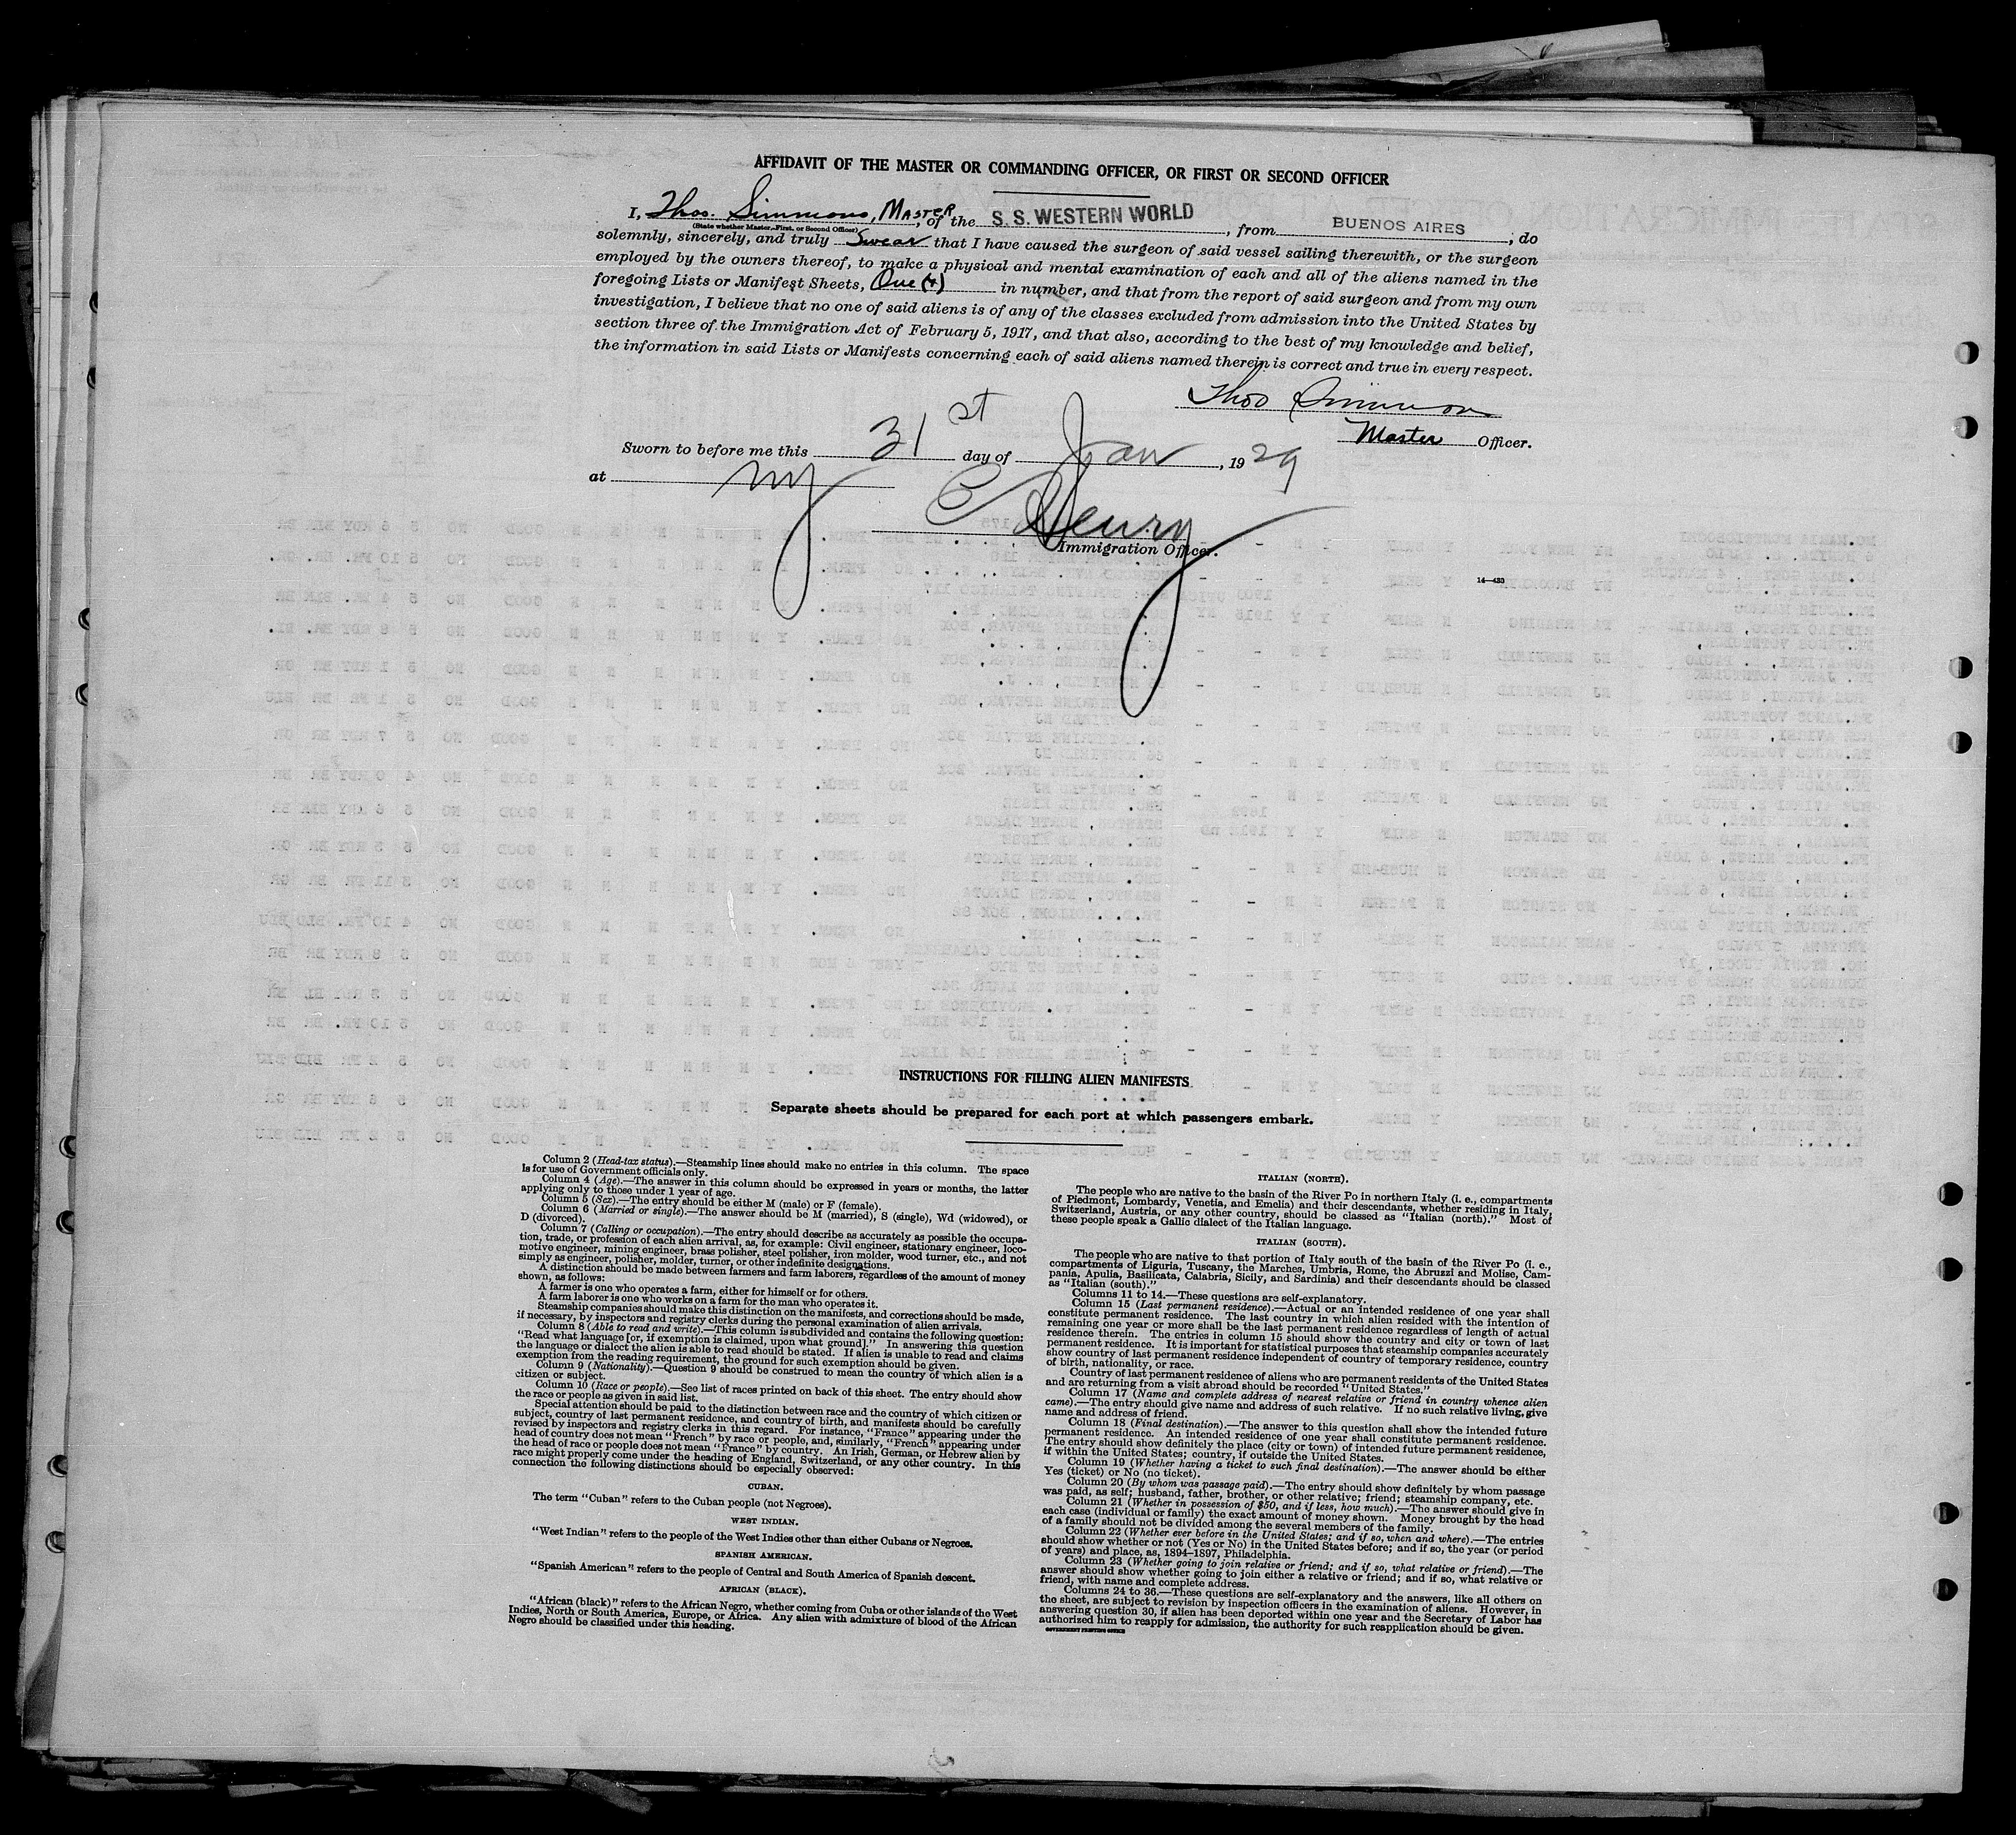 AFFIDAVIT OF THE MASTER OR COMMANDING OFFICER, OR FIRST OR SECOND OFFICER
I, Thos. Simmons, Master, of the S. S. WESTERN WORLD, from BUENOS AIRES; do
(State whether Master, First, or Second Officer)
solemnly, sincerely, and truly Swear that I have caused the surgeon of said vessel sailing therewith, or the surgeon
employed by the owners thereof, to make a physical and mental examination of each and all of the aliens named in the
foregoing Lists or Manifest Sheets, One (1) in number, and that from the report of said surgeon and from my own
investigation, I believe that no one of said aliens is of any of the classes excluded from admission into the United States by
section three of the Immigration Act of February 5, 1917, and that also, according to the best of my knowledge and belief,
the information in said Lists or Manifests concerning each of said aliens named therein is correct and true in every respect.
Thos Simmons
Master Officer.
Sworn to before me this 31st day of Jan, 1929
at NY
C Henry
Immigration Officer.
14—433
INSTRUCTIONS FOR FILLING ALIEN MANIFESTS
Separate sheets should be prepared for each port at which passengers embark.
Column 2 (Head-tax status).—Steamship lines should make no entries in this column. The space
is for use of Government officials only.
Column 4 (Age).—The answer in this column should be expressed in years or months, the latter
applying only to those under 1 year of age.
Column 5 (Sex).—The entry should be either M (male) or F (female).
Column 6 (Married or single).—The answer should be M (married), S (single), Wd (widowed), or
D (divorced).
Column 7 (Calling or occupation).—The entry should describe as accurately as possible the occupa-
tion, trade, or profession of each alien arrival, as, for example: Civil engineer, stationary engineer, loco-
motive engineer, mining engineer, brass polisher, steel polisher, iron molder, wood turner, etc., and not
simply as engineer, polisher, molder, turner, or other indefinite designations.
A distinction should be made between farmers and farm laborers, regardless of the amount of money
shown, as follows:
A farmer is one who operates a farm, either for himself or for others.
A farm laborer is one who works on a farm for the man who operates it.
Steamship companies should make this distinction on the manifests, and corrections should be made,
if necessary, by inspectors and registry clerks during the personal examination of alien arrivals.
Column 8 (Able to read and write).—This column is subdivided and contains the following question:
"Read what language [or, if exemption is claimed, upon what ground]." In answering this question
the language or dialect the alien is able to read should be stated. If alien is unable to read and claims
exemption from the reading requirement, the ground for such exemption should be given.
Column 9 (Nationality).—Question 9 should be construed to mean the country of which alien is a
citizen or subject.
Column 10 (Race or people).—See list of races printed on back of this sheet. The entry should show
the race or people as given in said list.
Special attention should be paid to the distinction between race and the country of which citizen or
subject, country of last permanent residence, and country of birth, and manifests should be carefully
revised by inspectors and registry clerks in this regard. For instance, "France" appearing under the
head of country does not mean "French" by race or people, and, similarly, "French" appearing under
the head of race or people does not mean "France" by country. An Irish, German, or Hebrew alien by
race might properly come under the heading of England, Switzerland, or any other country. In this
connection the following distinctions should be especially observed:
CUBAN.
The term "Cuban" refers to the Cuban people (not Negroes).
WEST INDIAN.
"West Indian" refers to the people of the West Indies other than either Cubans or Negroes.
SPANISH AMERICAN.
"Spanish American" refers to the people of Central and South America of Spanish descent.
AFRICAN (BLACK).
"African (black)" refers to the African Negro, whether coming from Cuba or other islands of the West
Indies, North or South America, Europe, or Africa. Any alien with admixture of blood of the African
Negro should be classified under this heading.
ITALIAN (NORTH).
The people who are native to the basin of the River Po in northern Italy (i. e., compartments
of Piedmont, Lombardy, Venetia, and Emelia) and their descendants, whether residing in Italy,
Switzerland, Austria, or any other country, should be classed as "Italian (north)." Most of
these people speak a Gallic dialect of the Italian language.
ITALIAN (SOUTH).
The people who are native to that portion of Italy south of the basin of the River Po (i. e.,
compartments of Liguria, Tuscany, the Marches, Umbria, Rome, the Abruzzi and Molise, Cam-
pania, Apulia, Basilicata, Calabria, Sicily, and Sardinia) and their descendants should be classed
as "Italian (south)."
Columns 11 to 14.—These questions are self-explanatory.
Column 15 (Last permanent residence).—Actual or an intended residence of one year shall
constitute permanent residence. The last country in which alien resided with the intention of
remaining one year or more shall be the last permanent residence regardless of length of actual
residence therein. The entries in column 15 should show the country and city or town of last
permanent residence. It is important for statistical purposes that steamship companies accurately
show country of last permanent residence independent of country of temporary residence, country
of birth, nationality, or race.
Country of last permanent residence of aliens who are permanent residents of the United States
and are returning from a visit abroad should be recorded "United States."
Column 17 (Name and complete address of nearest relative or friend in country whence alien
came).—The entry should give name and address of such relative. If no such relative living, give
name and address of friend.
Column 18 (Final destination).—The answer to this question shall show the intended future
permanent residence. An intended residence of one year shall constitute permanent residence.
The entry should show definitely the place (city or town) of intended future permanent residence,
if within the United States; country, if outside the United States.
Column 19 (Whether having a ticket to such final destination).—The answer should be either
Yes (ticket) or No (no ticket).
Column 20 (By whom was passage paid).—The entry should show definitely by whom passage
was paid, as self; husband, father, brother, or other relative; friend; steamship company, etc.
Column 21 (Whether in possession of $50, and if less, how much).—The answer should give in
each case (individual or family) the exact amount of money shown. Money brought by the head
of a family should not be divided among the several members of the family.
Column 22 (Whether ever before in the United States; and if so, when and where).—The entries
should show whether or not (Yes or No) in the United States before; and if so, the year (or period
of years) and place, as, 1894–1897, Philadelphia.
Column 23 (Whether going to join relative or friend; and if so, what relative or friend).—The
answer should show whether going to join either a relative or friend; and if so, what relative or
friend, with name and complete address.
Columns 24 to 36.—These questions are self-explanatory and the answers, like all others on
the sheet, are subject to revision by inspection officers in the examination of aliens. However, in
answering question 30, if alien has been deported within one year and the Secretary of Labor has
authorized him to reapply for admission, the authority for such reapplication should be given.
GOVERNMENT PRINTING OFFICE